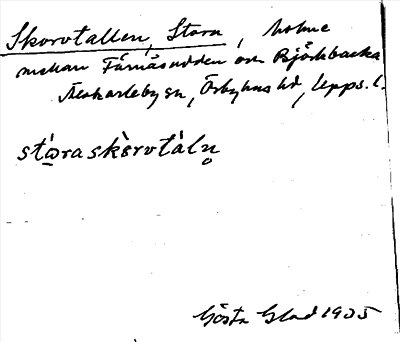 Skorvtallen, Stora, holme
mellan Fårnäsudden och Björkbacka
Älvkarleby sn, Örbyhus hd, Upps. l.
stⱥ́raskè̀rvtáln̥
Gösta Glad 1935